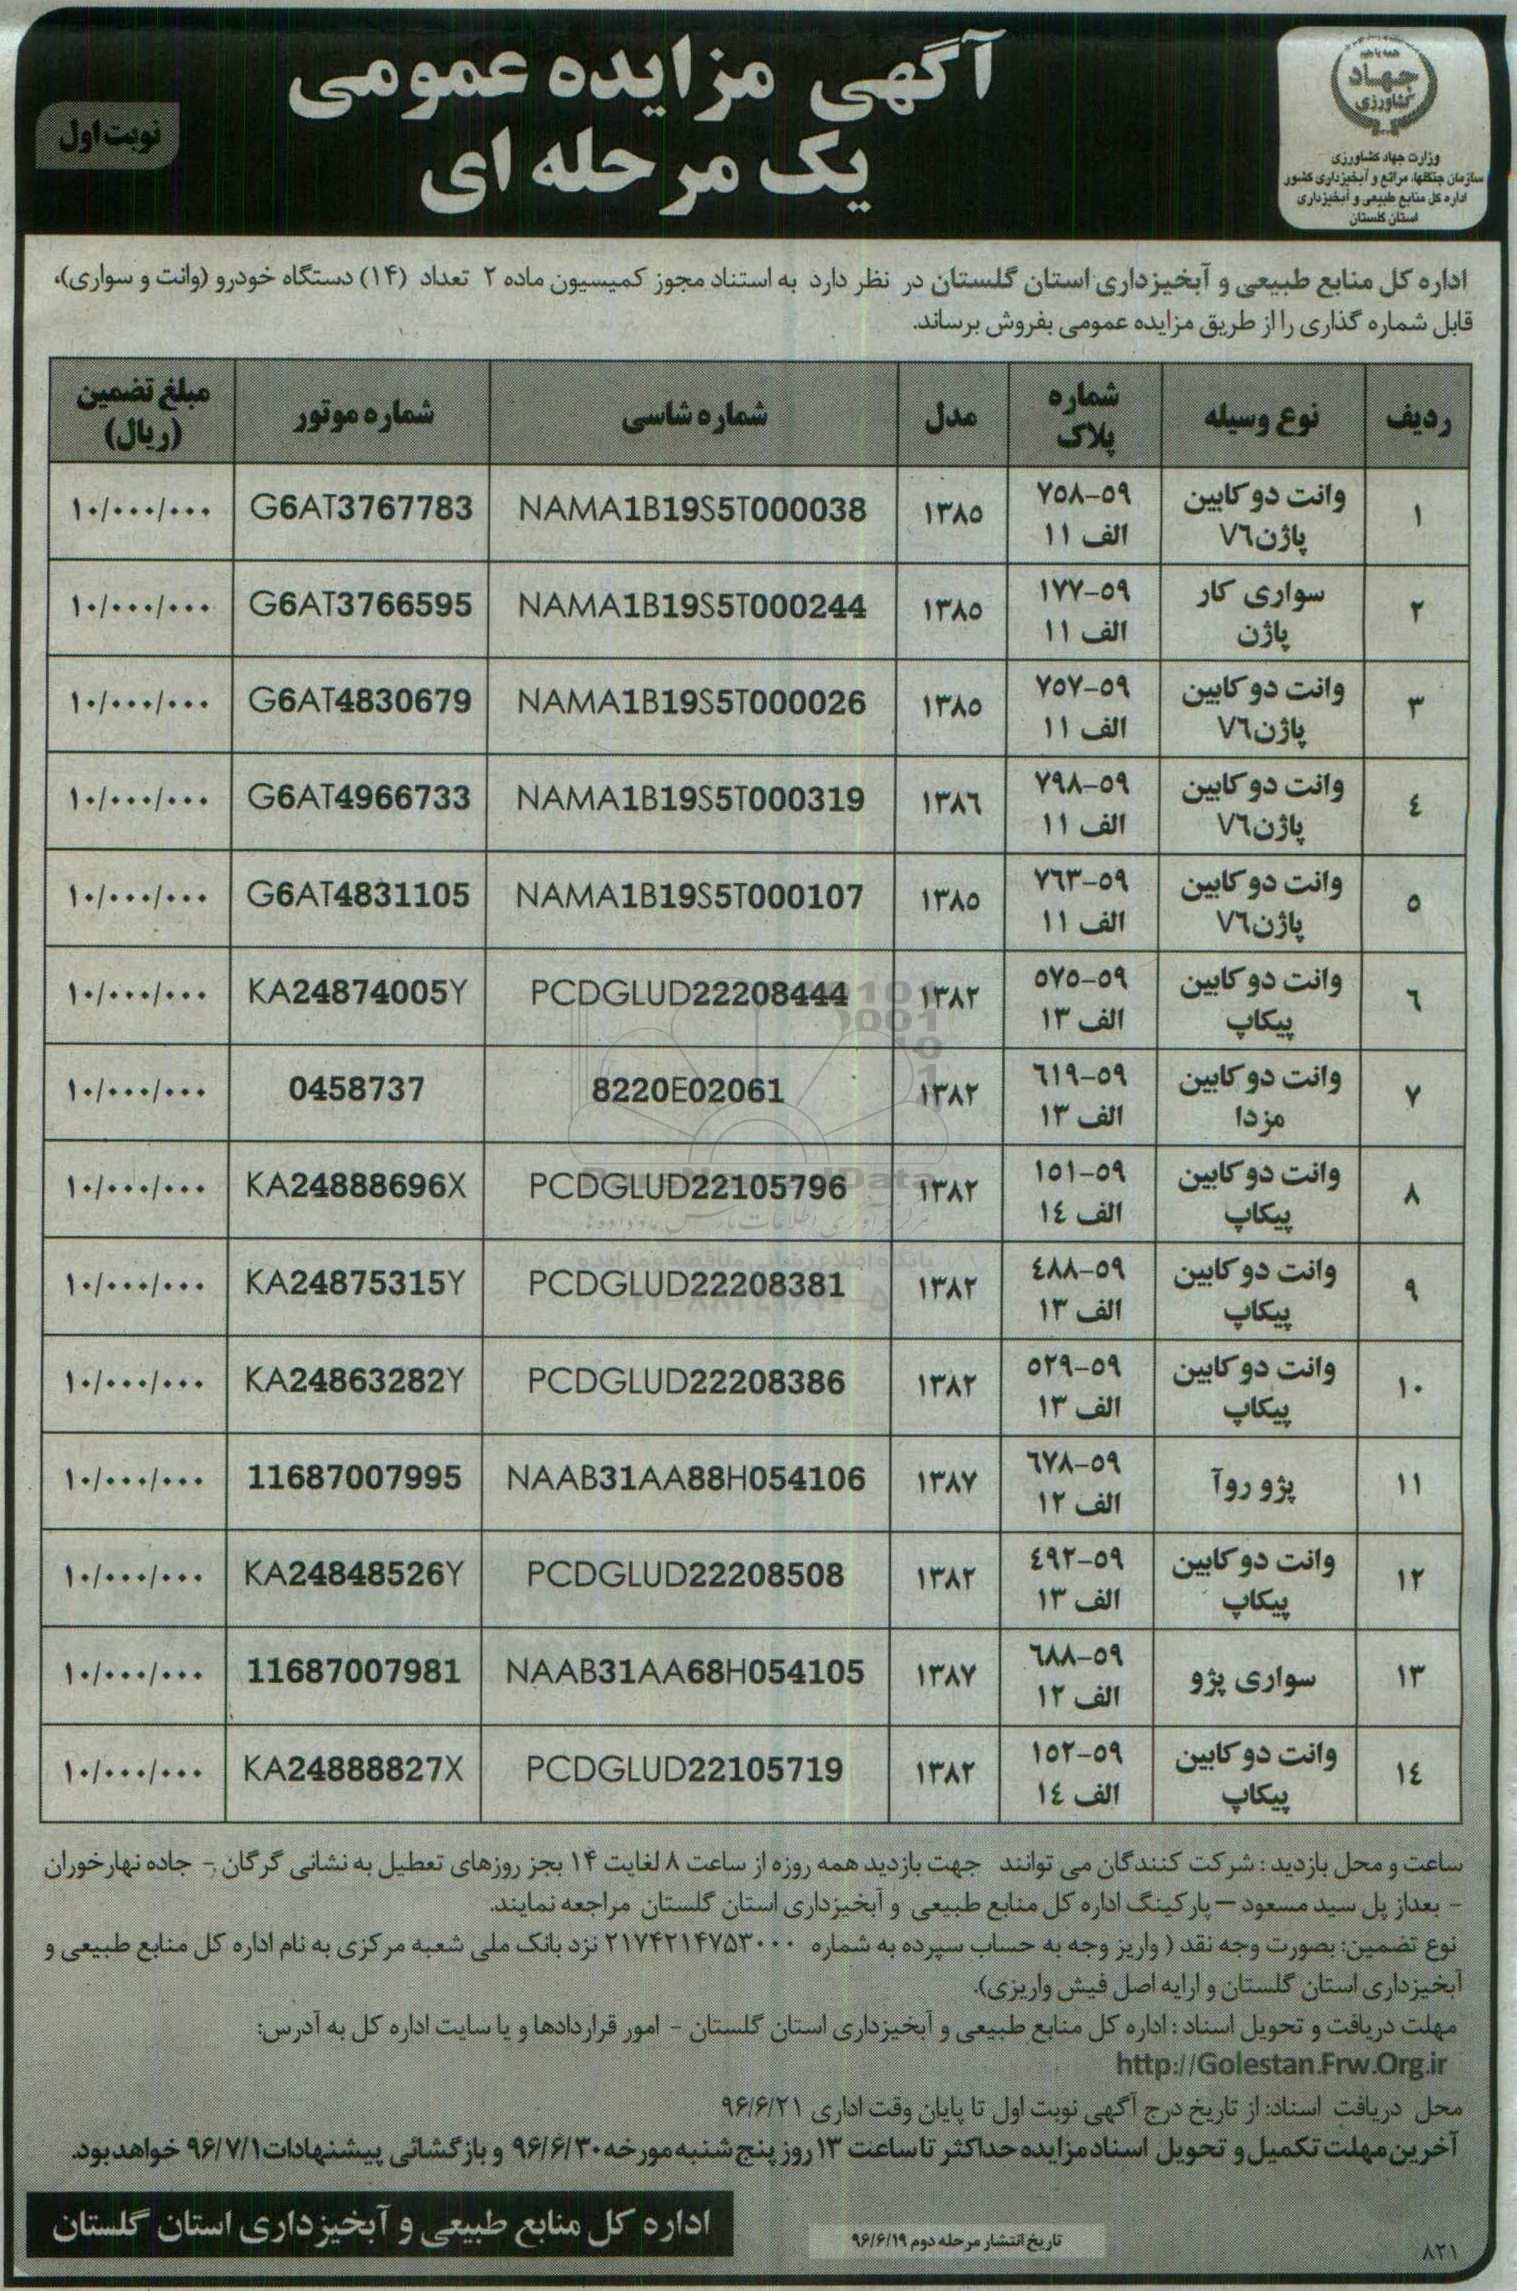 همه با هم
جهاد
کشاورزی
وزارت جهاد کشاورزی
سازمان جنگلها، مراتع و آبخیزداری کشور
اداره کل منابع طبیعی و آبخیزداری
استان گلستان
آگهی مزایده عمومی
یک مرحله ای
نوبت اول
اداره کل منابع طبیعی و آبخیزداری استان گلستان در نظر دارد به استناد مجوز کمیسیون ماده ۲ تعداد (۱۴) دستگاه خودرو (وانت و سواری)،
قابل شماره گذاری را از طریق مزایده عمومی بفروش برساند.
ردیف نوع وسیله شماره پلاک مدل شماره شاسی شماره موتور مبلغ تضمین (ریال)
۱ وانت دو کابین پاژن۷۶ ۵۹-۷۵۸ الف ۱۱ ۱۳۸۵ NAMA1B19S5T000038 G6AT3767783 ۱۰/۰۰۰/۰۰۰
۲ سواری کار پاژن ۵۹-۱۷۷ الف ۱۱ ۱۳۸۵ NAMA1B19S5T000244 G6AT3766595 ۱۰/۰۰۰/۰۰۰
۳ وانت دو کابین پاژن۷۶ ۵۹-۷۵۷ الف ۱۱ ۱۳۸۵ NAMA1B19S5T000026 G6AT4830679 ۱۰/۰۰۰/۰۰۰
۴ وانت دو کابین پاژن۷۶ ۵۹-۷۹۸ الف ۱۱ ۱۳۸۶ NAMA1B19S5T000319 G6AT4966733 ۱۰/۰۰۰/۰۰۰
۵ وانت دو کابین پاژن۷۶ ۵۹-۷۶۳ الف ۱۱ ۱۳۸۵ NAMA1B19S5T000107 G6AT4831105 ۱۰/۰۰۰/۰۰۰
۶ وانت دو کابین پیکاپ ۵۹-۵۷۵ الف ۱۳ ۱۳۸۲ PCDGLUD22208444 KA24874005Y ۱۰/۰۰۰/۰۰۰
۷ وانت دو کابین مزدا ۵۹-۶۱۹ الف ۱۳ ۱۳۸۲ 8220E02061 0458737 ۱۰/۰۰۰/۰۰۰
۸ وانت دو کابین پیکاپ ۵۹-۱۵۱ الف ۱۴ ۱۳۸۲ PCDGLUD22105796 KA24888696X ۱۰/۰۰۰/۰۰۰
۹ وانت دو کابین پیکاپ ۵۹-۴۸۸ الف ۱۳ ۱۳۸۲ PCDGLUD22208381 KA24875315Y ۱۰/۰۰۰/۰۰۰
۱۰ وانت دو کابین پیکاپ ۵۹-۵۲۹ الف ۱۳ ۱۳۸۲ PCDGLUD22208386 KA24863282Y ۱۰/۰۰۰/۰۰۰
۱۱ پژو روآ ۵۹-۶۷۸ الف ۱۲ ۱۳۸۷ NAAB31AA88H054106 11687007995 ۱۰/۰۰۰/۰۰۰
۱۲ وانت دو کابین پیکاپ ۵۹-۴۹۲ الف ۱۳ ۱۳۸۲ PCDGLUD22208508 KA24848526Y ۱۰/۰۰۰/۰۰۰
۱۳ سواری پژو ۵۹-۶۸۸ الف ۱۲ ۱۳۸۷ NAAB31AA68H054105 11687007981 ۱۰/۰۰۰/۰۰۰
۱۴ وانت دو کابین پیکاپ ۵۹-۱۵۲ الف ۱۴ ۱۳۸۲ PCDGLUD22105719 KA24888827X ۱۰/۰۰۰/۰۰۰
ساعت و محل بازدید : شرکت کنندگان می توانند جهت بازدید همه روزه از ساعت ۸ لغایت ۱۴ بجز روزهای تعطیل به نشانی گرگان - جاده نهارخوران
- بعداز پل سید مسعود – پارکینگ اداره کل منابع طبیعی و آبخیزداری استان گلستان مراجعه نمایند.
نوع تضمین: بصورت وجه نقد ( واریز وجه به حساب سپرده به شماره ۲۱۷۴۲۱۴۷۵۳۰۰۰ نزد بانک ملی شعبه مرکزی به نام اداره کل منابع طبیعی و
آبخیزداری استان گلستان و ارایه اصل فیش واریزی).
مهلت دریافت و تحویل اسناد : اداره کل منابع طبیعی و آبخیزداری استان گلستان - امور قراردادها و یا سایت اداره کل به آدرس:
http://Golestan.Frw.Org.ir
محل دریافت اسناد: از تاریخ درج آگهی نوبت اول تا پایان وقت اداری ۹۶/۶/۲۱
آخرین مهلت تکمیل و تحویل اسناد مزایده حداکثر تا ساعت ۱۳ روز پنج شنبه مورخه ۹۶/۶/۳۰ و بازگشائی پیشنهادات ۹۶/۷/۱ خواهد بود.
تاریخ انتشار مرحله دوم ۹۶/۶/۱۹
اداره کل منابع طبیعی و آبخیزداری استان گلستان
۸۲۱